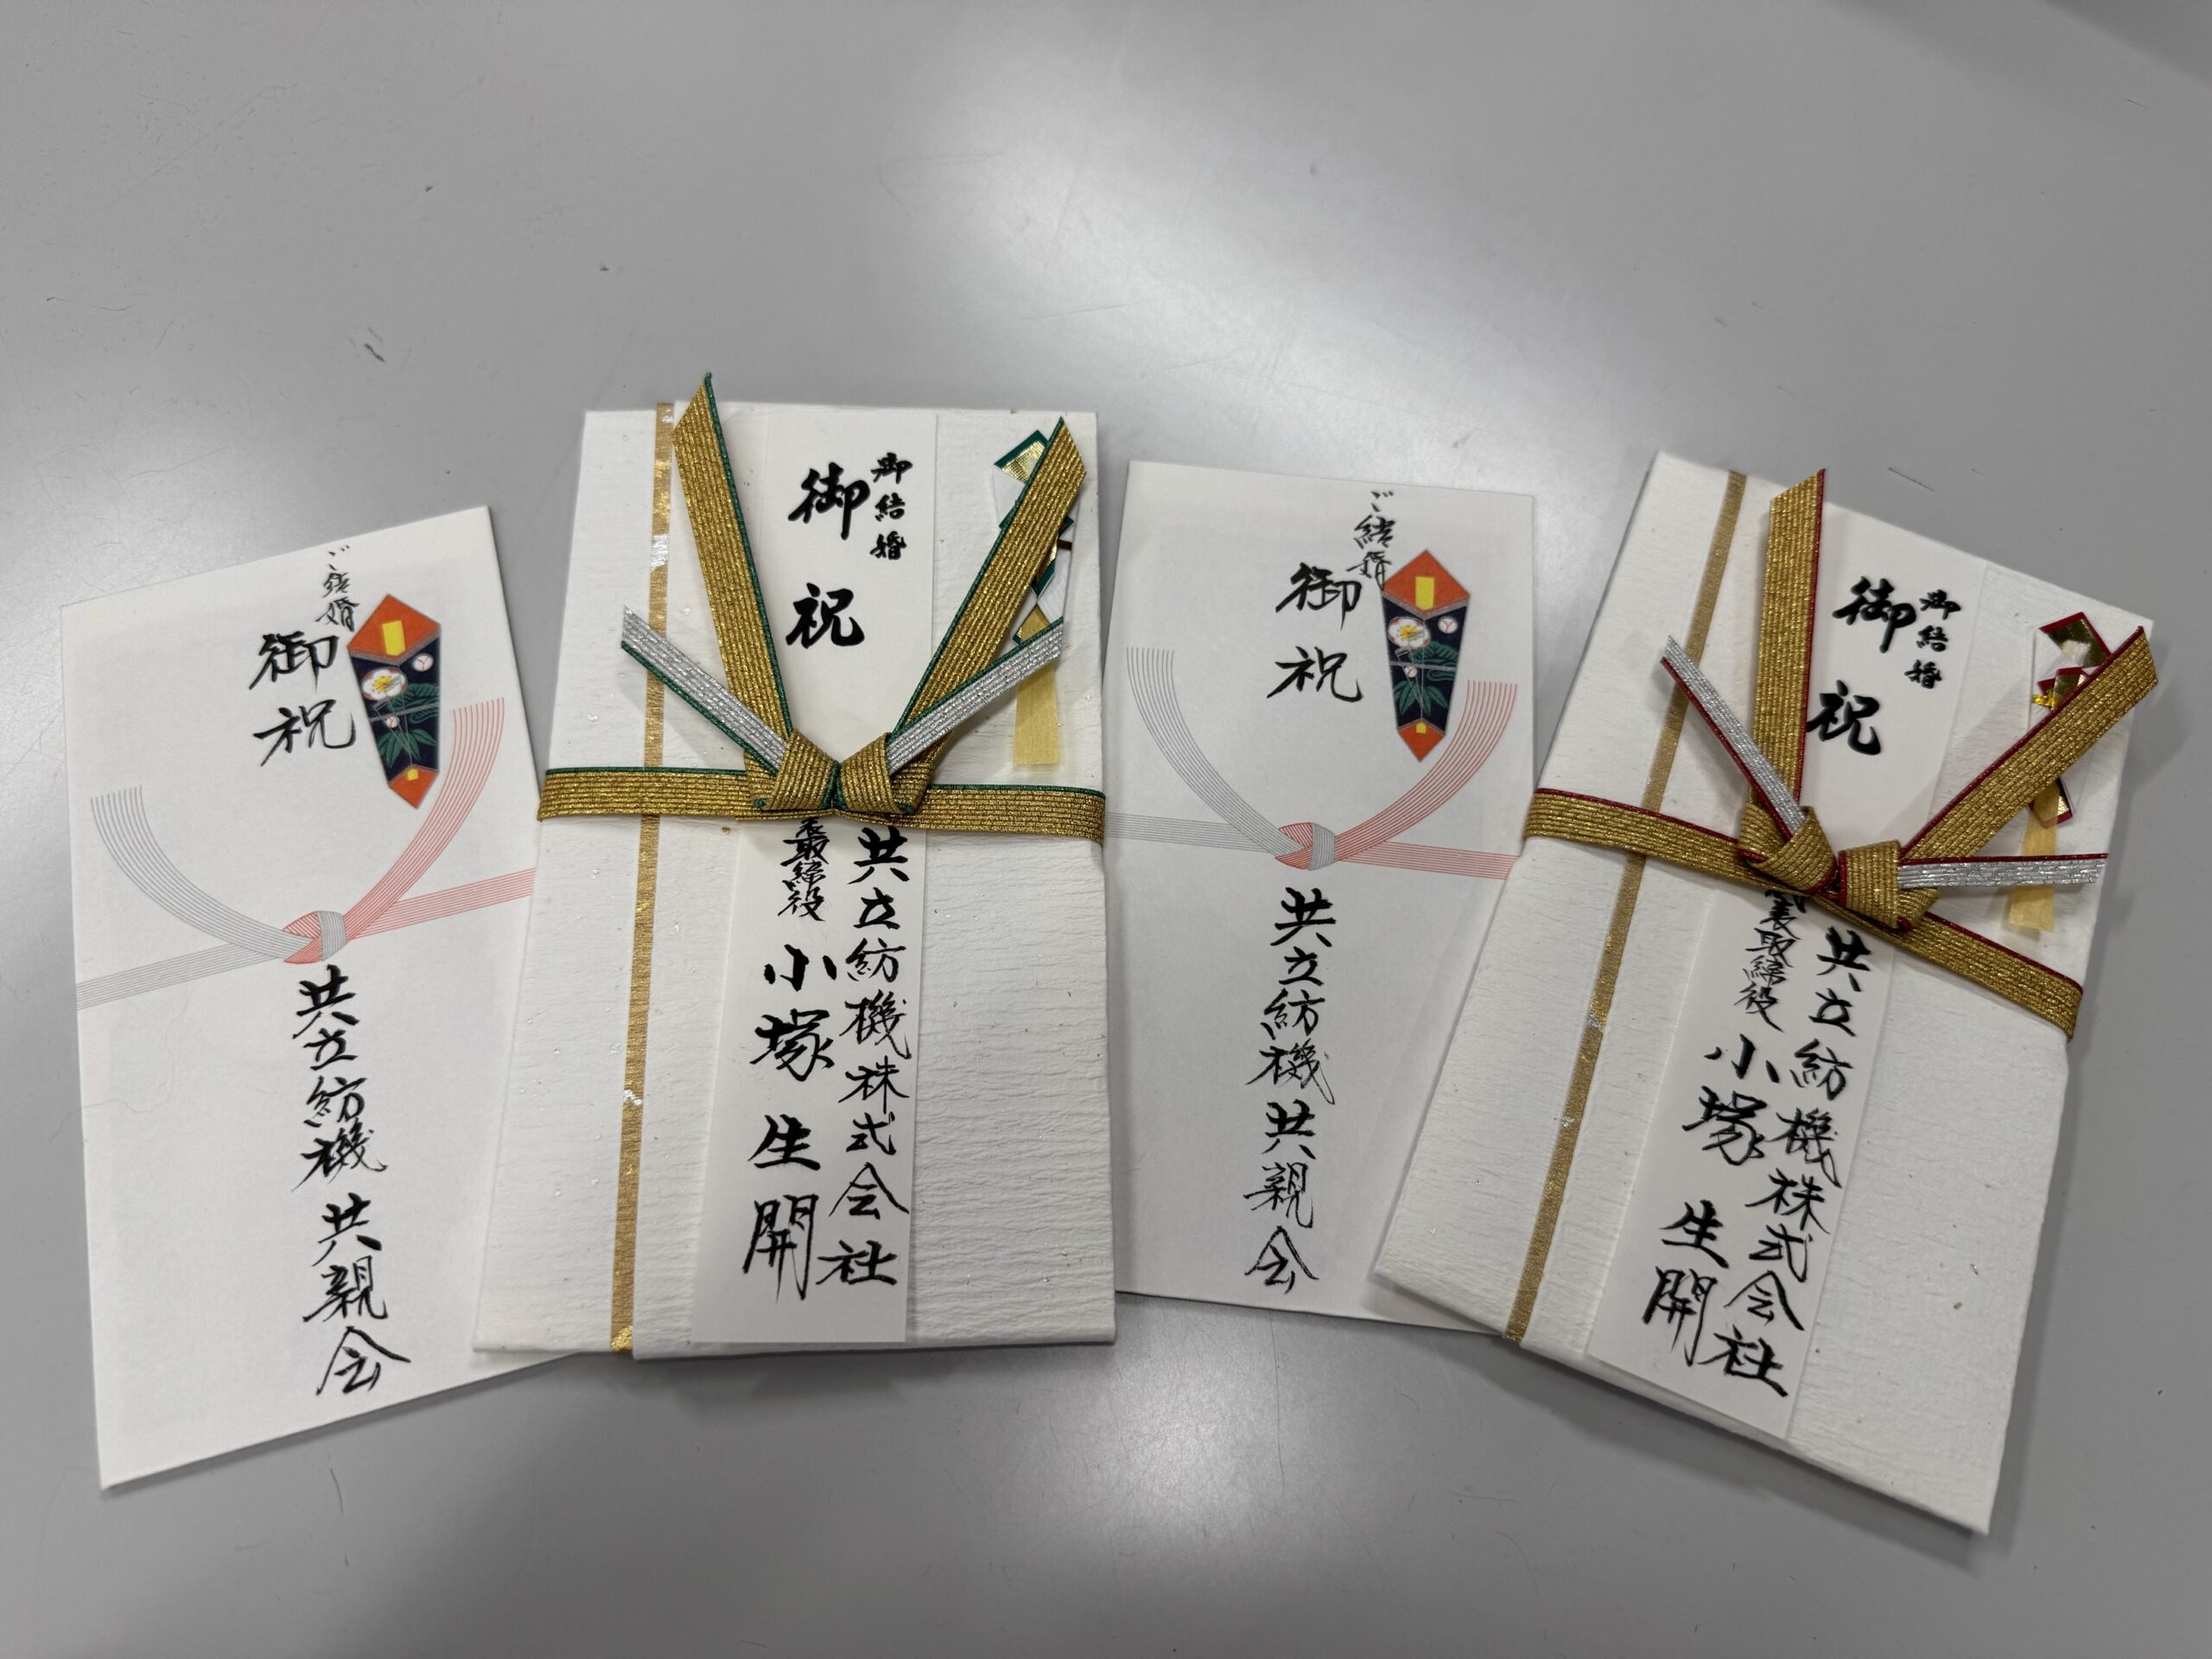 ご結婚
御祝
共立紡機 共親会
御結婚
御祝
共立紡機株式会社
表取締役 小塚 生開
ご結婚
御祝
共立紡機 共親会
御結婚
御祝
共立紡機株式会社
表取締役 小塚 生開